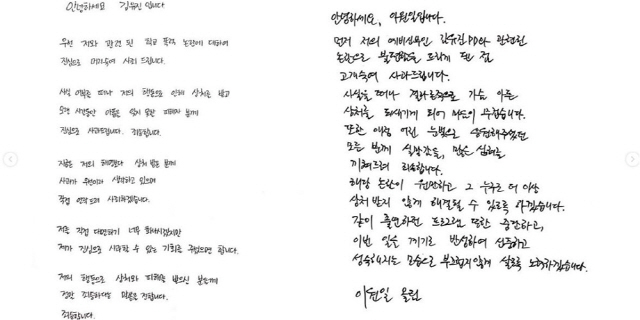 안녕하세요 김유진입니다
우선 저와 관련 된 학교 폭력 논란에 대하여
진심으로 머리숙여 사죄 드립니다.
사실 여부를 떠나 저의 행동으로 인해 상처를 받고
오랜 시간동안 아픔을 잊지 못한 피해자 분께
진심으로 사과드립니다. 죄송합니다.
지금은 저의 상처 받은 분께
사과가 우선이라 생각하고 있으며
직접 연락드려 사죄하겠습니다.
저를 직접 대면하기 너무
제가 진심으로 사과할 수 있는 기회를 주셨으면 합니다.
저의 행동으로 상처와 피해를 받으신 분들께
정말 죄송하다는 말씀을 전합니다.
죄송합니다.
안녕하세요, 이원일입니다.
먼저 저의 예비신부인 김유진 PD와 관련된
논란으로 불편함을 드리게 된 점
고개숙여 사과드립니다.
사실을 떠나 결과론적으로 가슴 아픈
상처를 되새기게 되어 마음이 무겁습니다.
또한 애정 어린 눈빛으로 응원해주셨던
모든 분께 실망감을, 많은 심려를
끼쳐드려 죄송합니다.
해당 논란이 원만하고 그 누구도 더 이상
상처 받지 않게 해결될 수 있도록 하겠습니다.
같이 출연하던 프로그램 또한 중단하고,
이번 일을 계기로 반성하여 신중하고
성숙해지는 모습으로 부끄럽지않게 살도록 노력하겠습니다.
이원일 올림